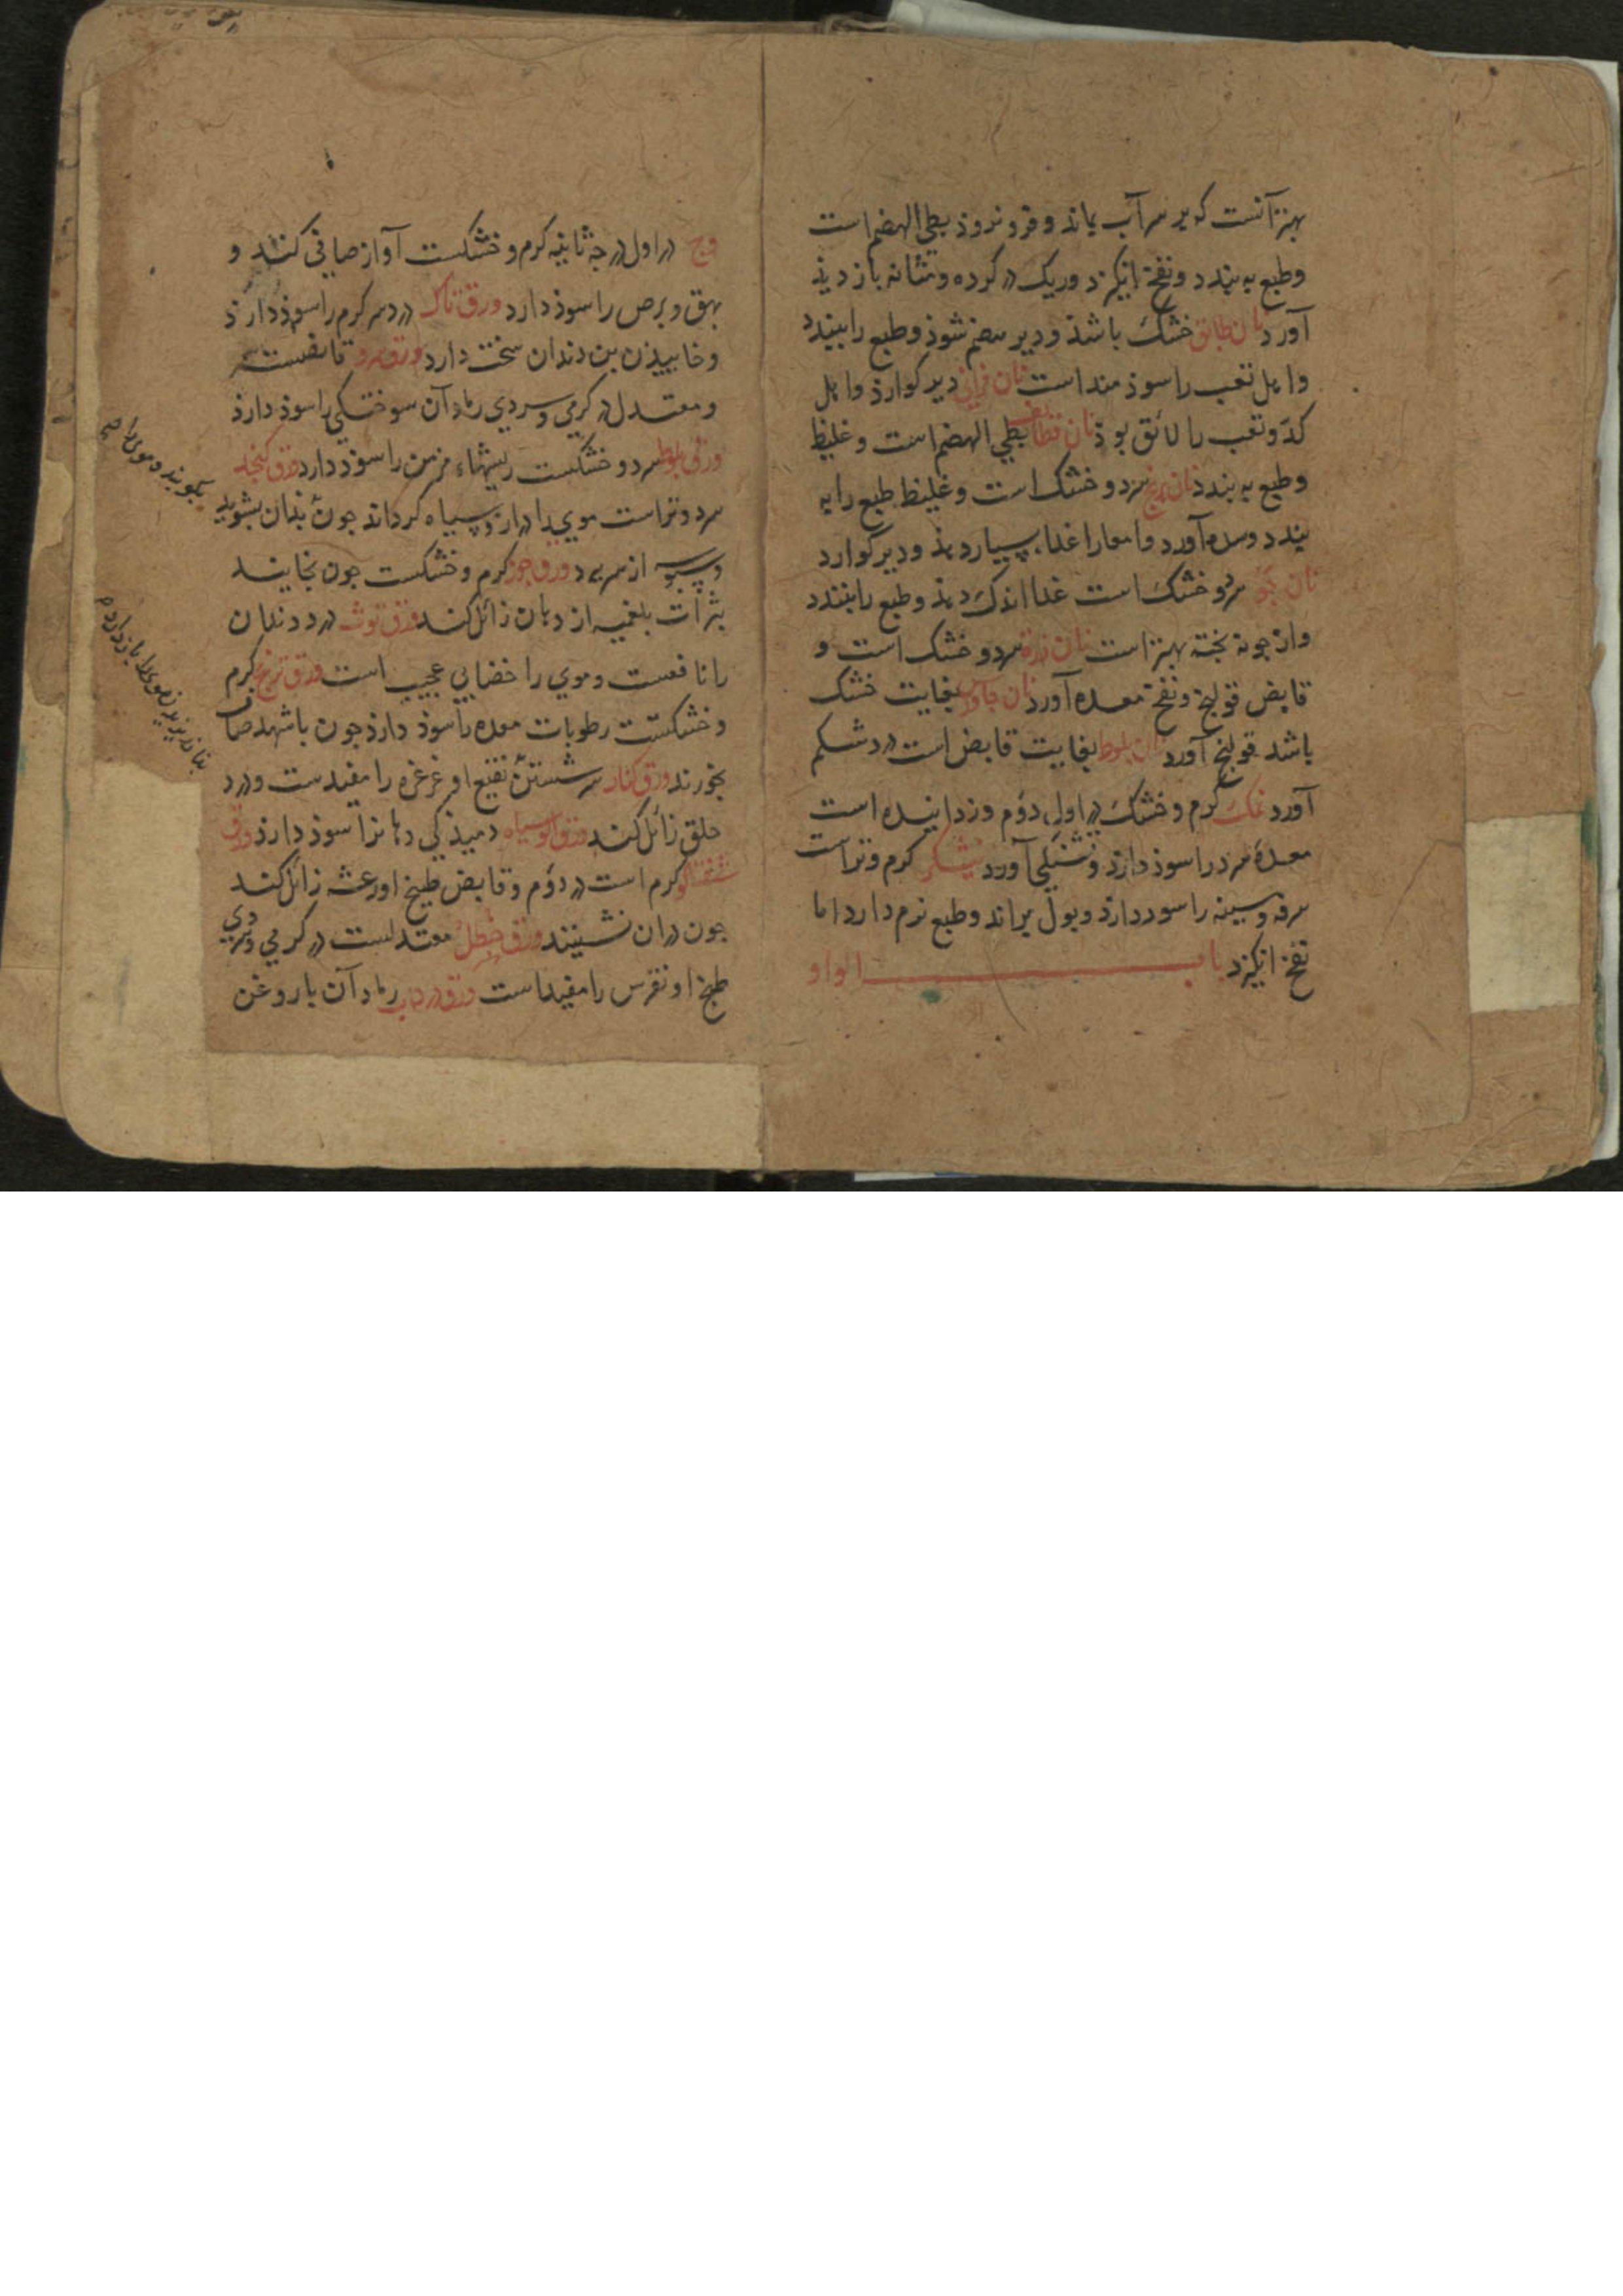 بهتر آنست که بر سر آب بماند و فرو نروذ بطی الهضم است
وطبع به بندد و نفخ انگیزد و ریک در کرده و مثانه باز دیذ
آورد نان طابق خشک باشد و دیر هضم شوذ و طبع را ببندد
و اهل تعب را سوذ مند است نان فرانی دیر کوارذ و اهل
کدّ و تعب را لائق بوذ نان قطایف بطی الهضم است و غلیظ
و طبع به بندد نان برنج سرد و خشک است و غلیظ طبع را به
بندد و سده آورد و امعا را غذاء بسیار دهذ و دیر کوارد
نان جو سرد و خشک است غذا اندک دهذ و طبع را بندد
و از جو نه پخته بهتر است نان ذرة سرد و خشک است و
قابض قولنج و نفخ معده آورد نان جاورس بغایت خشک
باشد قولنج آورد نان بلوط بغایت قابض است درد شکم
آورد نمک کرم و خشک در اول دوم و زداینده است
معدهٔ سرد را سوذ دارذ و تشنکی آورد نیشکر کرم و تر است
سرفه و سینه را سوذ دارد و بول براند و طبع نرم دارد اما
نفخ انگیزد باب الواو
وج در اول درجهٔ ثانیه کرم و خشکست آواز صافی کند و
بهق و برص را سوذ دارد ورق تاک درد سر کرم را سوذ دارذ
و خاییذن بن دندان سخت دارد ورق سرو قابضست
و معتدل در کرمی و سردی رماد آن سوختکی را سوذ دارذ
ورق بلوط سرد و خشکست ریشهاء مزمن را سوذ دارد ورق کنجد
سرد و تر است موی را دراز و سیاه کرداند جون بذان بشویند
و سبوسه از سر ببرد ورق جوز کرم و خشکست جون بخایند
بثرات بلغمیه از دهان زائل کند ورق توث درد دندان
را نافعست و موی را خضابی عجیب است ورق ترنج کرم
و خشکست رطوبات معده را سوذ دارذ جون با شهد صاف
بخورند ورق کنار سر شستن نقیع او غرغره را مفیدست و درد
حلق زائل کند ورق آلو سیاه دمیذکی دهانرا سوذ دارذ ورق
شفتالو کرم است در دوم و قابض طبیخ او رعشه زائل کند
جون در ان نشینند ورق حنظل معتدلست در کرمی و سردی
طبخ او نقرس را مفید است ورق دردار رماد آن با روغن